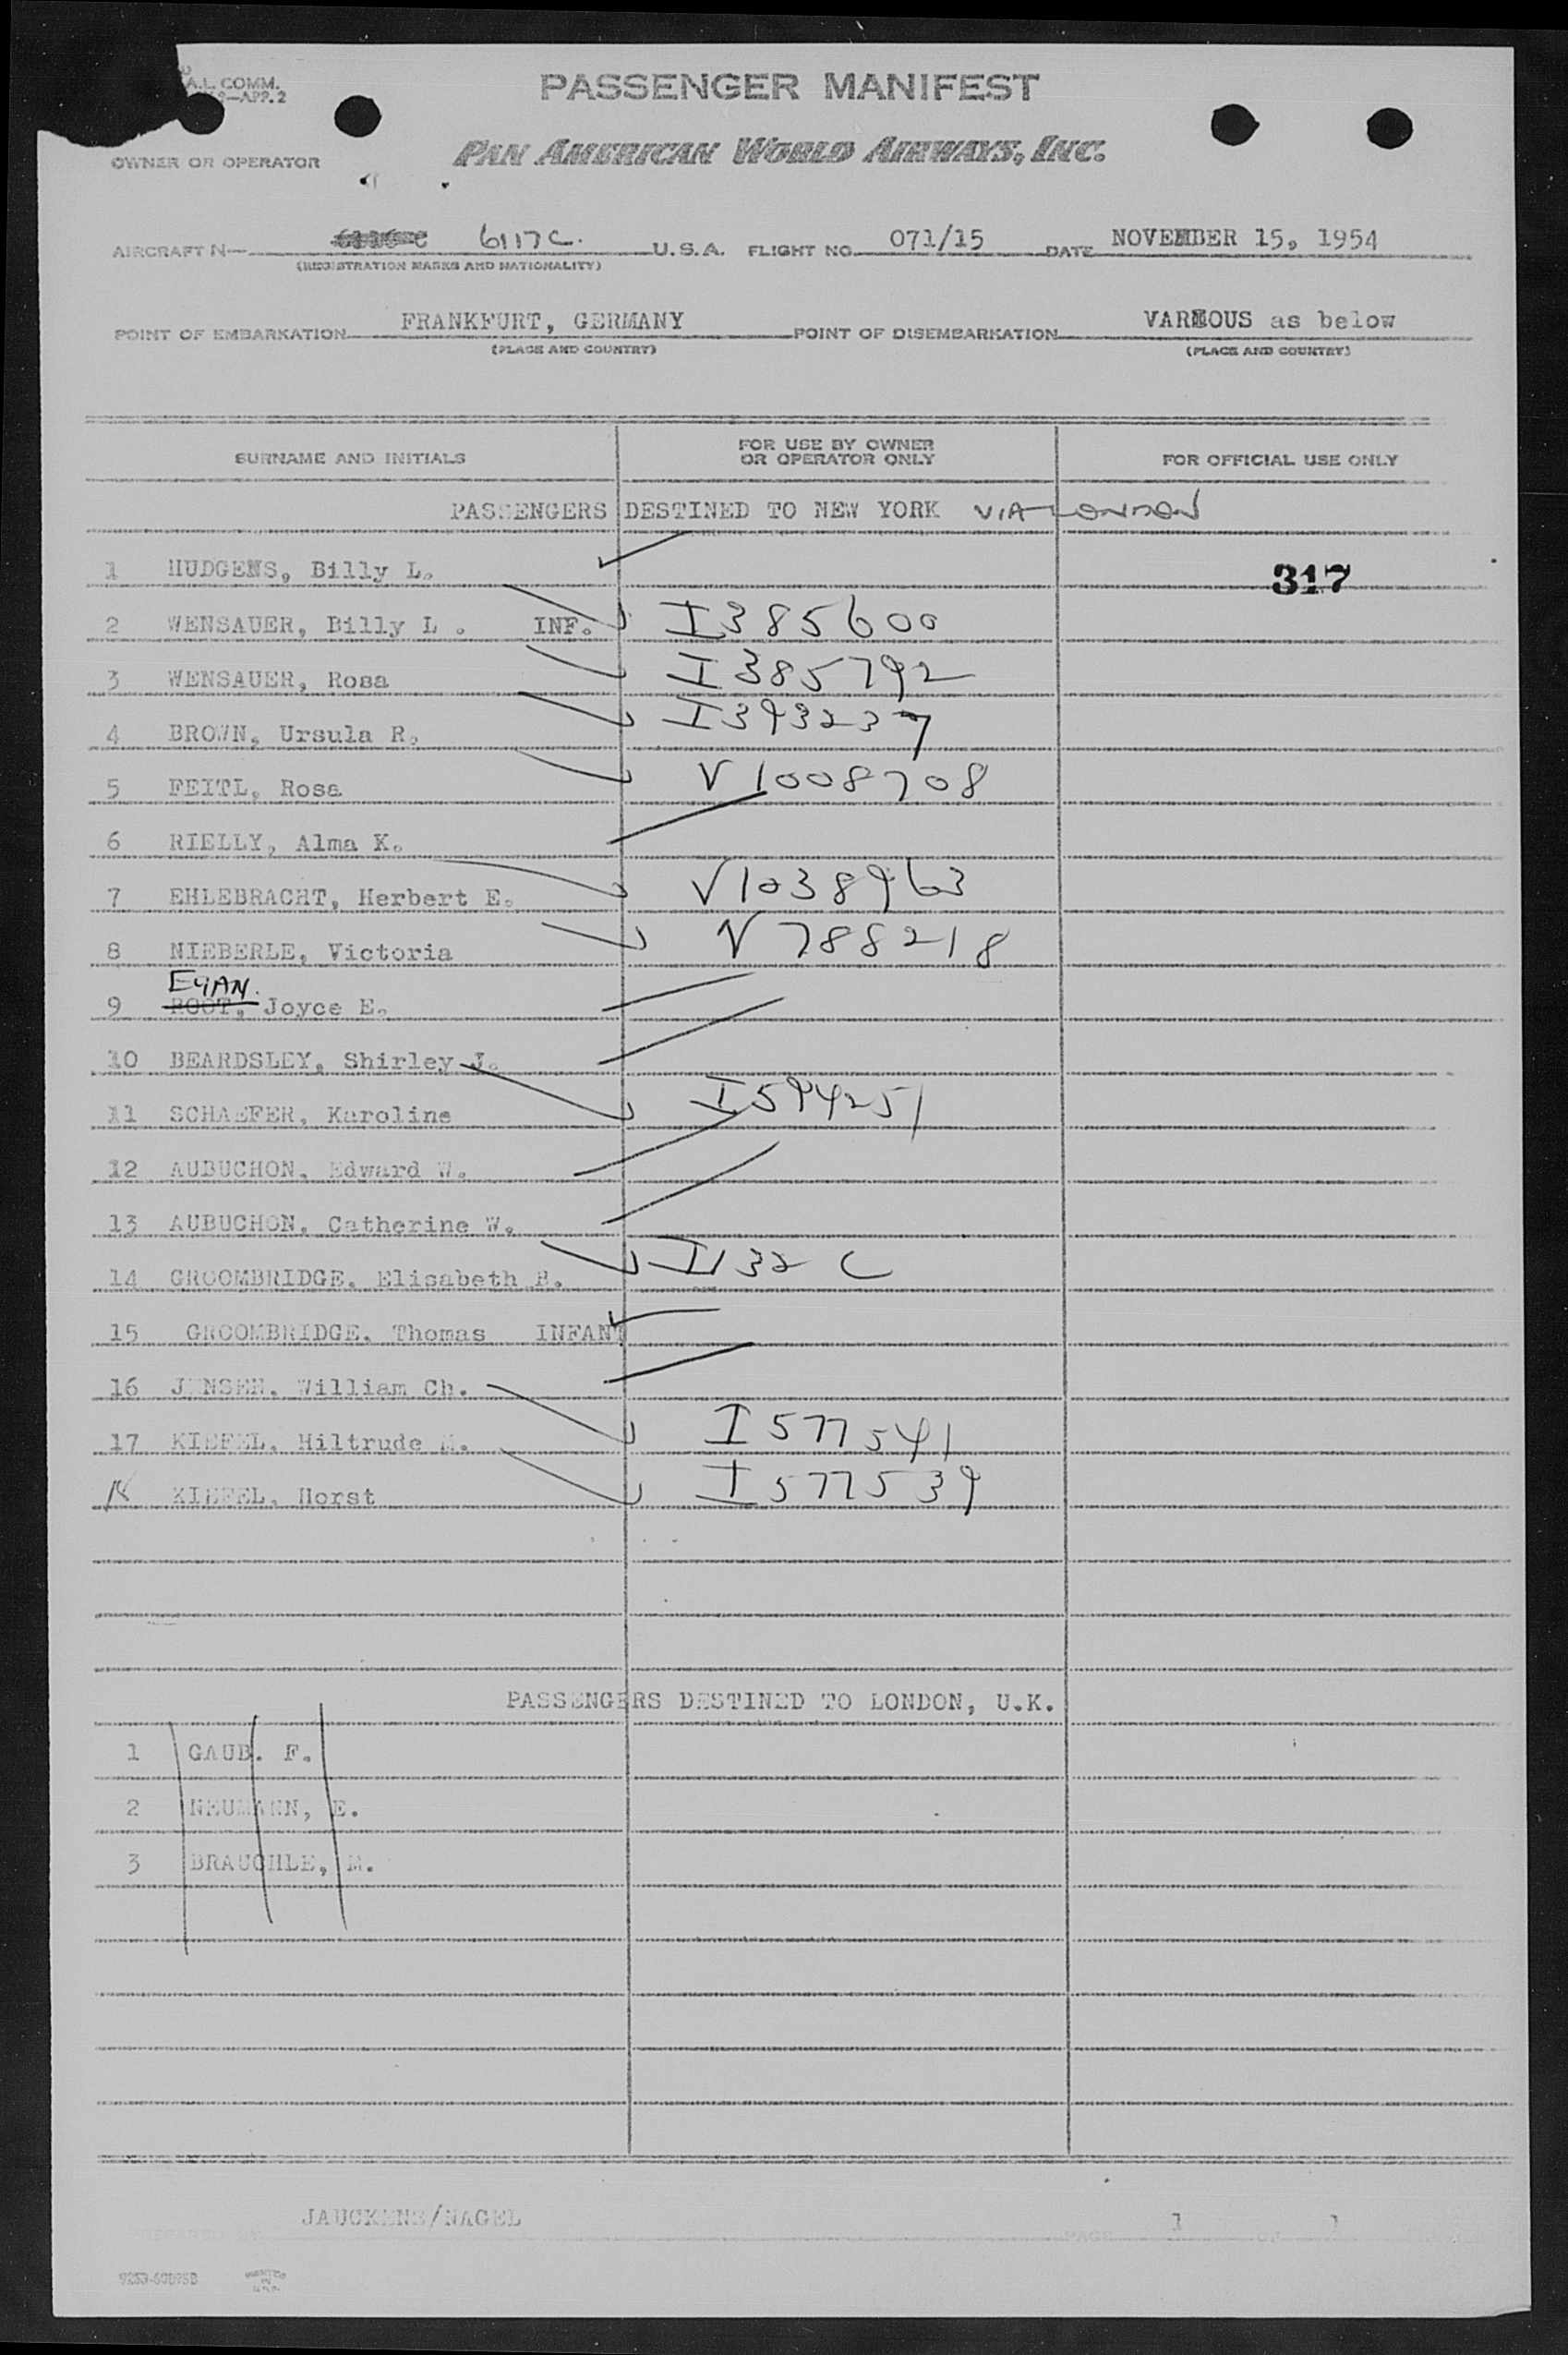 A.L. COMM.
9—APP. 2
PASSENGER MANIFEST
OWNER OR OPERATOR
PAN AMERICAN WORLD AIRWAYS, INC.
AIRCRAFT N— 6117C. U.S.A. FLIGHT NO. 071/15 DATE NOVEMBER 15, 1954
(REGISTRATION MARKS AND NATIONALITY)
POINT OF EMBARKATION FRANKFURT, GERMANY POINT OF DISEMBARKATION VARIOUS as below
(PLACE AND COUNTRY) (PLACE AND COUNTRY)
SURNAME AND INITIALS FOR USE BY OWNER OR OPERATOR ONLY FOR OFFICIAL USE ONLY
PASSENGERS DESTINED TO NEW YORK VIA LONDON
1 HUDGENS, Billy L. 317
2 WENSAUER, Billy L . INF. I385600
3 WENSAUER, Rosa I385792
4 BROWN, Ursula R. I393237
5 FEITL, Rosa V1008708
6 RIELLY, Alma K.
7 EHLEBRACHT, Herbert E. V1038963
8 NIEBERLE, Victoria V788218
EGAN.
9 ROOT, Joyce E.
10 BEARDSLEY, Shirley J.
11 SCHAEFER, Karoline I594251
12 AUBUCHON, Edward W.
13 AUBUCHON, Catherine W.
14 GROOMBRIDGE, Elisabeth I132 C
15 GROOMBRIDGE, Thomas INFANT
16 JENSEN, William Ch.
17 KIEFEL, Hiltrude M. I577541
18 KIEFEL, Horst I577539
PASSENGERS DESTINED TO LONDON, U.K.
1 GAUB. F.
2 NEUMANN, E.
3 BRAUCHLE, M.
JAUCKENS/NAGEL PAGE 1 OF 1